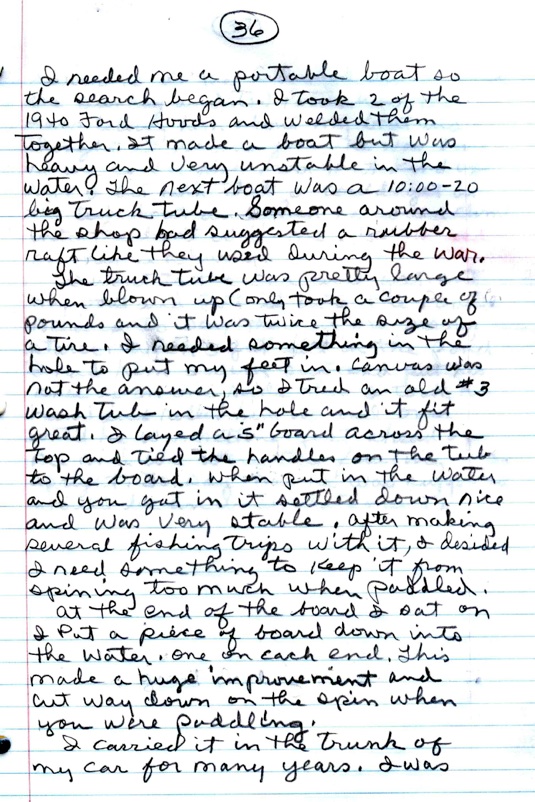 36
I needed me a portable boat so
the search began. I took 2 of the
1940 Ford Hoods and welded them
together. It made a boat but was
heavy and very unstable in the
water. The next boat was a 10:00-20
big truck tube. Someone around
the shop had suggested a rubber
raft like they used during the war.
The truck tube was pretty large
when blown up (only took a couple of
pounds and it was twice the size of
a tire. I needed something in the
hole to put my feet in. Canvas was
not the answer, so I tried an old #3
wash tub in the hole and it fit
great. I layed a 5" board across the
top and tied the handles on the tub
to the board. When put in the water
and you got in it settled down nice
and was very stable. After making
several fishing trips with it, I desided
I need something to keep it from
spining too much when paddled.
At the end of the board I sat on
I put a piece of board down into
the water. one on each end. This
made a huge improvement and
cut way down on the spin when
you were paddling.
I carried it in the trunk of
my car for many years. I was